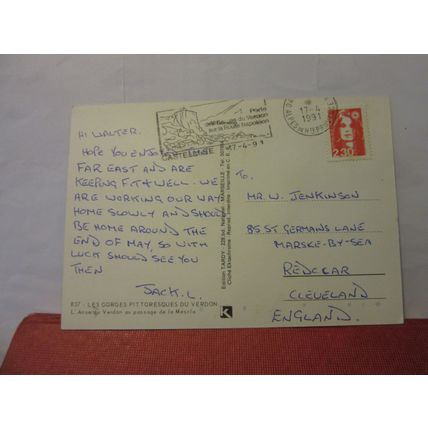 HI WALTER.
HOPE YOU ENJOY
FAR EAST AND ARE
KEEPING FIT & WELL. WE
ARE WORKING OUR WAY
HOME SLOWLY AND SHOULD
BE HOME AROUND THE
END OF MAY, SO WITH
LUCK SHOULD SEE YOU
THEN
JACK. L.
837 - LES GORGES PITTORESQUES DU VERDON
L'Arc du Verdon au passage de la Mescla
Porte
du Verdon
sur la Route Napoléon
CASTELLANE
17-4-91
17-4
1991
2,30
Edition TARDY, 228, bd. National MARSEILLE
TO.
MR. W. JENKINSON
85 ST GERMAINS LANE
MARSKE-BY-SEA
REDCAR
CLEVELAND
ENGLAND.
K